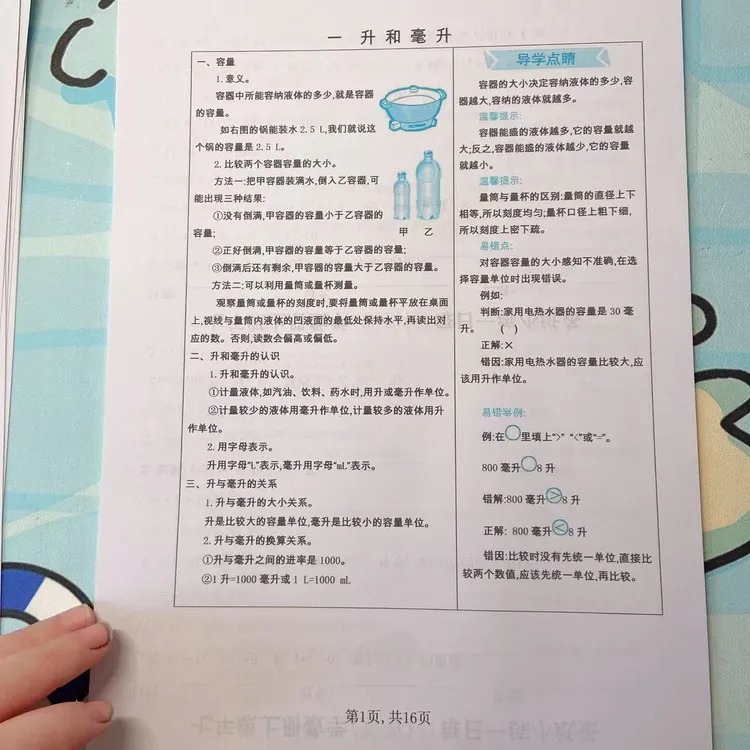 一 升和毫升
一、容量
1.意义。
容器中所能容纳液体的多少,就是容器
的容量。
如右图的锅能装水2.5 L,我们就说这
个锅的容量是2.5 L。
2.比较两个容器容量的大小。
方法一:把甲容器装满水,倒入乙容器,可
能出现三种结果:
①没有倒满,甲容器的容量小于乙容器的
容量;
甲 乙
②正好倒满,甲容器的容量等于乙容器的容量;
③倒满后还有剩余,甲容器的容量大于乙容器的容量。
方法二:可以利用量筒或量杯测量。
观察量筒或量杯的刻度时,要将量筒或量杯平放在桌面
上,视线与量筒内液体的凹液面的最低处保持水平,再读出对
应的数。否则,读数会偏高或偏低。
二、升和毫升的认识
1.升和毫升的认识。
①计量液体,如汽油、饮料、药水时,用升或毫升作单位。
②计量较少的液体用毫升作单位,计量较多的液体用升
作单位。
2.用字母表示。
升用字母“L”表示,毫升用字母“mL”表示。
三、升与毫升的关系
1.升与毫升的大小关系。
升是比较大的容量单位,毫升是比较小的容量单位。
2.升与毫升的换算关系。
①升与毫升之间的进率是1000。
②1升=1000 毫升或 1 L=1000 mL
导学点睛
容器的大小决定容纳液体的多少,容
器越大,容纳的液体就越多。
温馨提示:
容器能盛的液体越多,它的容量就越
大;反之,容器能盛的液体越少,它的容量
就越小。
温馨提示:
量筒与量杯的区别:量筒的直径上下
相等,所以刻度均匀;量杯口径上粗下细,
所以刻度上密下疏。
易错点:
对容器容量的大小感知不准确,在选
择容量单位时出现错误。
例如:
判断:家用电热水器的容量是30毫
升。 ( )
正解:×
错因:家用电热水器的容量比较大,应
该用升作单位。
易错举例:
例:在○里填上“>”“<”或“=”。
800毫升○8升
错解:800毫升>8升
正解: 800毫升<8升
错因:比较时没有先统一单位,直接比
较两个数值,应该先统一单位,再比较。
第1页,共16页